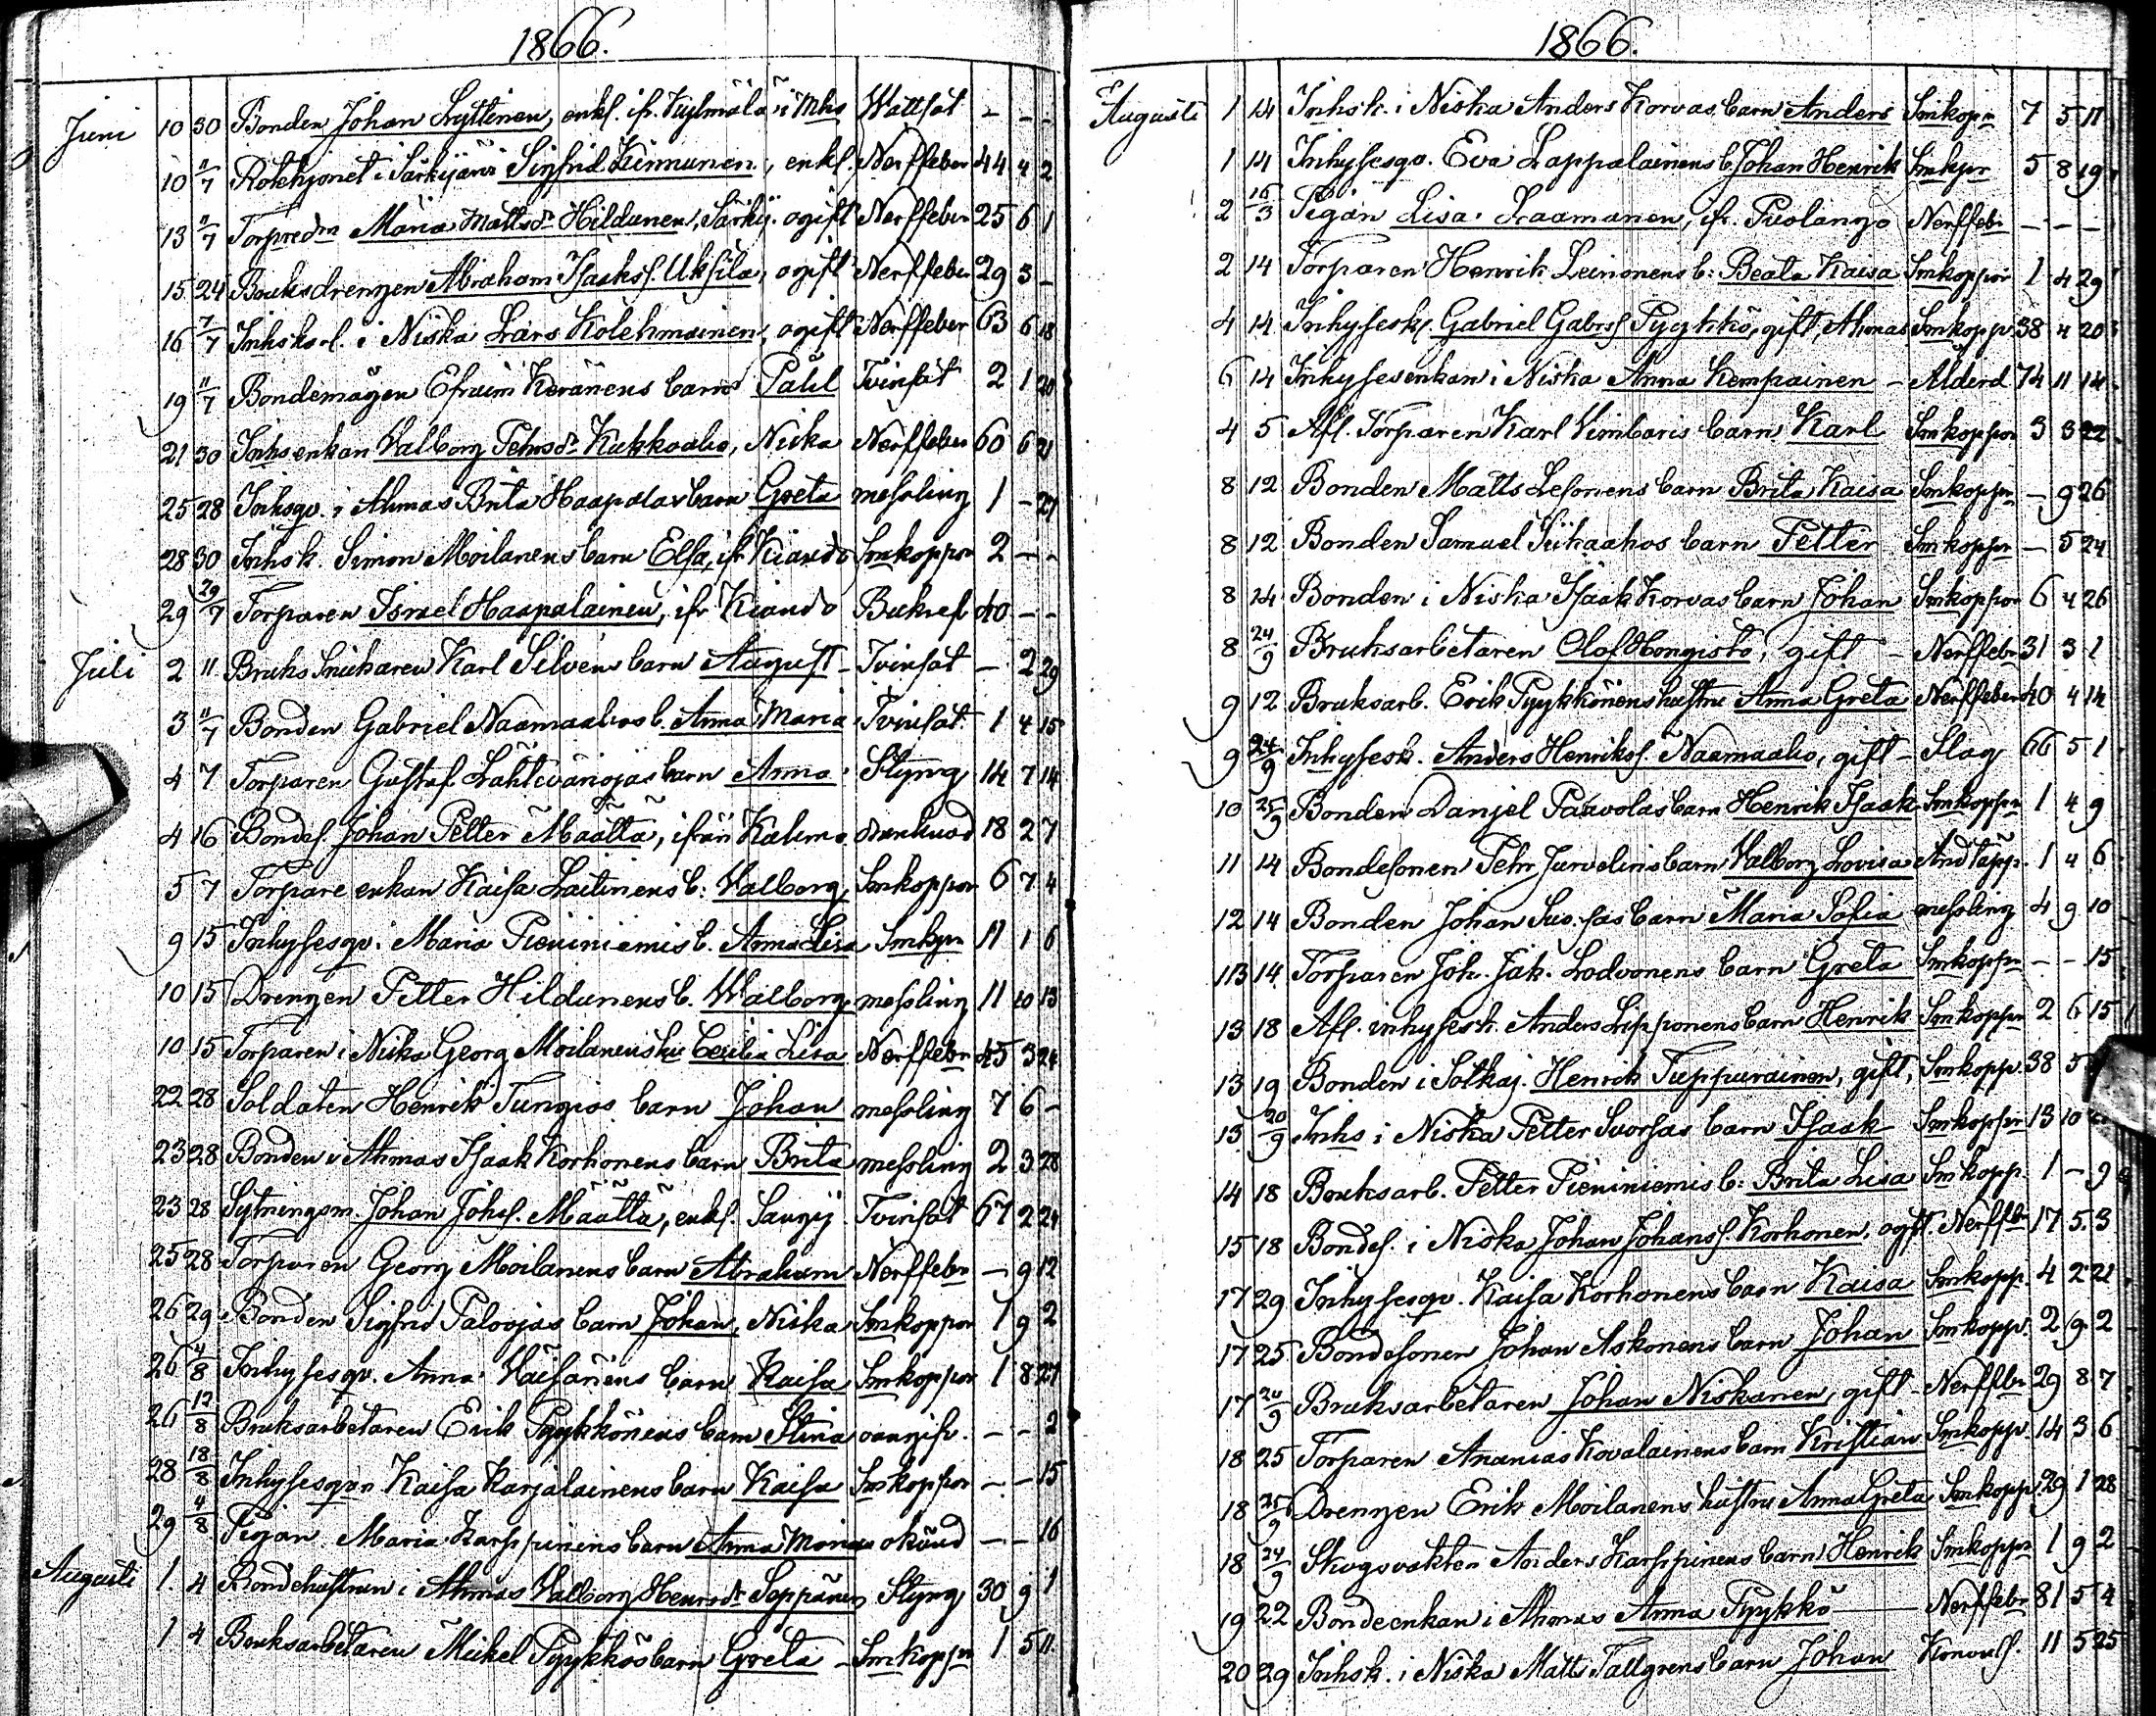 1866.
Juni 10 30 Bonden Johan Lyttinen, enkl. ifr. Kylmälä i Mhs Wattsot - - -
10 11/7 Rotehjonet i Särkijärvi Sigfrid Kinnunen, enkl. Nerffeber 44 4 2
13 11/7 Torpredn Maria Mattsdr Hildunen, Särkij. ogift Nerffeber 25 6 1
15 24 Bruksdrengen Abraham Isakss. Uksila, ogift Nerffeber 29 3 -
16 7/7 Inhskarl i Niska Lars Kolehmainen, ogift Nerffeber 63 6 18
19 11/7 Bondemågen Efraim Keränens barn Påhl Tvinsot 2 1 20
21 30 Inhsenkan Walborg Pehrsdr Kukkoaho, Niska Nerffeber 60 6 21
25 28 Inhsqv. i Ahmas Brita Haapalas barn Greta messling 1 - 27
28 30 Inhsk. Simon Moilanens barn Elsa, ifr Kiando Smkoppor 2 - -
29 29/7 Torparen Israel Haapalainen, ifr Kiando Bukref 40 - -
Juli 2 11 Bruks Snickaren Karl Silvens barn August - Tvinsot - 2 29
3 11/7 Bonden Gabriel Naamaahos b. Anna Maria Tvinsot 1 4 15
4 7 Torparen Gustaf Lähtevänojas barn Anna Styng 14 7 14
4 16 Bondes. Johan Petter Määttä, ifrån Kahma drunknad 18 2 7
5 7 Torpare enkan Kaisa Laitinens b: Walborg Smkoppor 6 7 4
9 15 Inhysesqv. Maria Pieniniemis b. Anna Lisa Smkpr 11 1 6
10 15 Drengen Petter Hildunens b. Walborg messling 11 10 13
10 15 Torparen i Niska Georg Moilanens hu Cecilia Lisa Nerffebr 45 3 24
22 28 Soldaten Henrik Tungios barn Johan messling 7 6 -
23 28 Bonden i Ahmas Isaak Korhonens barn Brita messling 2 3 28
23 28 Sytningsm. Johan Johss. Määttä, enkl. Tvinsot 67 2 24
25 28 Torparen Georg Moilanens barn Abraham Nerffebr - 9 12
26 29 Bonden Sigfrid Palovjas barn Johan, Niska Smkoppor 1 9 2
26 4/8 Inhysesqv. Anna Väisänens barn Kaisa Smkoppor 1 8 27
26 12/8 Bruksarbetaren Erik Pyykkönens barn Stina oangifv. - - 2
28 18/8 Inhysesqvn Kaisa Karjalainens barn Kaisa Smkoppor - - 15
29 4/8 Pigan Maria Karppinens barn Anna Maria okänd - - 16
Augusti 1 4 Bondehustrun i Ahmas Walborg Henrsdr Seppänen Styng 30 9 1
1 4 Bruksarbetaren Mickel Pyykkös barn Greta - Smkoppr 1 5 11
1866.
Augusti 1 14 Inhsk. i Niska Anders Korvas barn Anders Smkopr 7 5 11
1 14 Inhysesqv. Eva Lappalainens b. Johan Henrik Smkpr 5 8 19
2 16/3 Pigan Lisa Laamanen, ifr. Puolango Nerffebr - - -
2 14 Torparen Henrik Leinonens b: Beata Kaisa Smkoppor 1 4 29
4 14 Inhysesk. Gabriel Gabrss Pyykkö, gift, Ahmas Smkopp 38 4 20
6 14 Inhysesenkan i Niska Anna Kempainen - Alderd 74 11 14
4 5 Afl. Torparen Karl Vimbaris barn Karl Smkoppor 3 3 22
8 12 Bonden Matts Lesonens barn Brita Kaisa Smkoppr - 9 26
8 12 Bonden Samuel Siikaahos barn Petter Smkoppr - 5 24
8 14 Bonden i Niska Isaak Korvas barn Johan Smkoppor 6 4 26
8 24/9 Bruksarbetaren Olof Hongisto, gift - Nerffebr 31 3 1
9 12 Bruksarb. Erik Pyykkönens hustru Anna Greta Nerffeber 40 4 14
9 24/9 Inhysesk. Anders Henrikss. Naamaaho, gift - Slag 66 5 1
10 25/9 Bonden Daniel Paavolas barn Henrik Isaak Smkoppr 1 4 9
11 14 Bondesonen Pehr Jurvelins barn Walborg Lovisa Andtäpp. 1 4 6
12 14 Bonden Johan barn Maria Sofia messling 4 9 10
13 14 Torparen Joh. Jak. Lodvonens barn Greta Smkoppr - - 15
13 18 Afl. inhysesk. Anders Lipponens barn Henrik Smkoppr 2 6 15
13 19 Bonden i Sotkaj. Henrik Tuppurainen, gift, Smkopp. 38 5
13 20/9 Inhs i Niska Petter Suorsas barn Isaak Smkoppr 13 10
14 18 Bruksarb. Petter Pieniniemis b: Brita Lisa Smkopp. 1 - 9
15 18 Bondes. i Niska Johan Johanss. Korhonen, ogft. Nerffbr 17 5 3
17 29 Inhysesqv. Kaisa Korhonens barn Kaisa Smkopp. 4 2 21
17 25 Bondesonen Johan Askonens barn Johan Smkopp. 2 9 2
17 24/9 Bruksarbetaren Johan Niskanen, gift - Nerffbr 29 8 7
18 25 Torparen Ananias Kovalainens barn Kristian Smkopp. 14 3 6
18 25/9 Drengen Erik Moilanens hustru Anna Greta Smkopp 29 1 28
18 24/9 Skogsvakten Anders Karppinens barn Henrik Smkoppr 1 9 2
19 22 Bondeenkan i Ahmas Anna Pyykkö - Nerffebr 81 5 4
20 29 Inhsk. i Niska Matts Tallgrens barn Johan Konvuls. 11 5 25